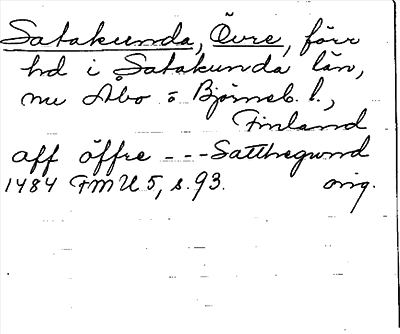 Satakunda, Övre, förr
hd i Satakunda län,
nu Åbo o Björneb. l.,
Finland
aff öffre - - - Satthegwnd
1484 FMU 5, s. 93. orig.